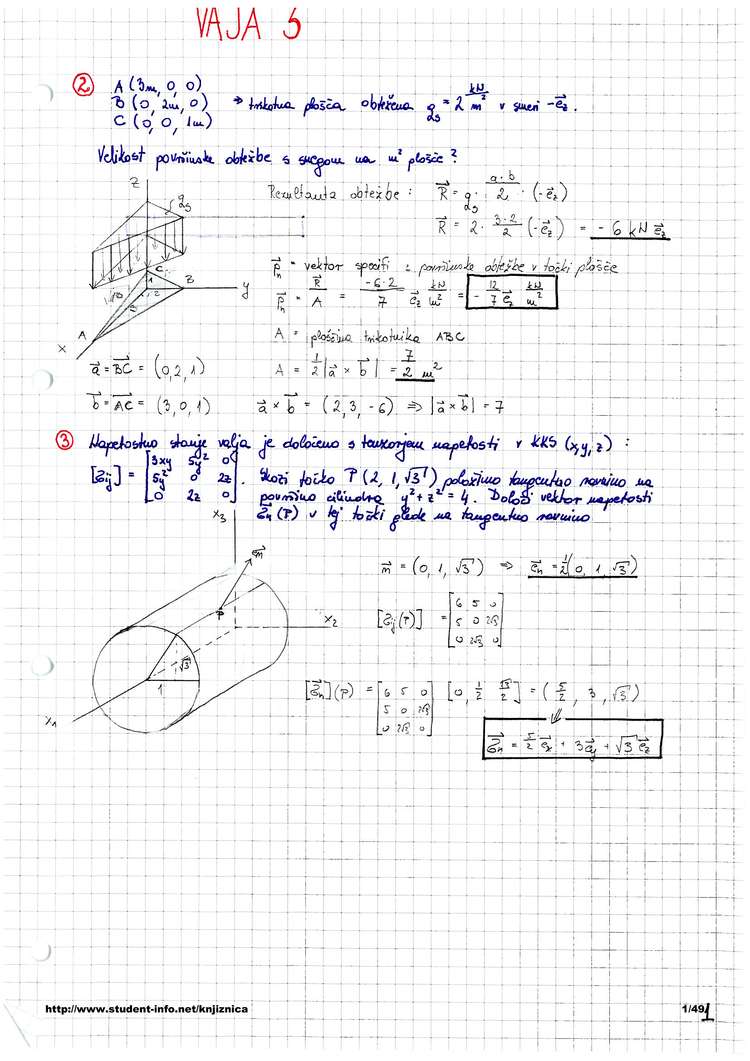 VAJA 5
② A (3m, 0, 0)
B (0, 2m, 0) ⇒ trikotna plošča obtežena q_s = 2 kN/m² v smeri -e⃗_z.
C (0, 0, 1m)
Velikost površinske obtežbe s snegom na m² plošče?
z
q_s
Rezultanta obtežbe : R⃗ = q_s · a·b/2 · (-e⃗_z)
R⃗ = 2 · 3·2/2 · (-e⃗_z) = -6 kN e⃗_z
p⃗_n = vektor specifi : površinske obtežbe v točki plošče
C 1 2 3 B y
p⃗_n = R⃗/A = -6·2/7 e⃗_z kN/m² = -12/7 e⃗_z kN/m²
A
x
A = ploščina trikotnika ABC
a⃗ = BC⃗ = (0,2,1) A = 1/2 |a⃗ × b⃗| = 7/2 m²
b⃗ = AC⃗ = (3,0,1) a⃗ × b⃗ = (2,3,-6) ⇒ |a⃗ × b⃗| = 7
③ Napetostno stanje valja je določeno s tenzorjem napetosti v KKS (x,y,z) :
[σij] = [3xy 5y² 0
5y² 0 2z
0 2z 0] . Skozi točko P(2, 1, √3) položimo tangentno ravnino na
površino cilindra y²+z² = 4. Določi vektor napetosti
σ⃗_n (P) v tej točki glede na tangentno ravnino
x₃
e⃗_n
P
x₂
√3
1
x₁
n⃗ = (0, 1, √3) ⇒ e⃗_n = 1/2 (0, 1, √3)
[σij(P)] = [6 5 0
5 0 2√3
0 2√3 0]
[σ⃗_n](P) = [6 5 0
5 0 2√3
0 2√3 0] [0, 1/2 √3/2] = (5/2, 3, √3)
⇓
σ⃗_n = 5/2 e⃗_x + 3e⃗_y + √3 e⃗_z
http://www.student-info.net/knjiznica
1/49
1